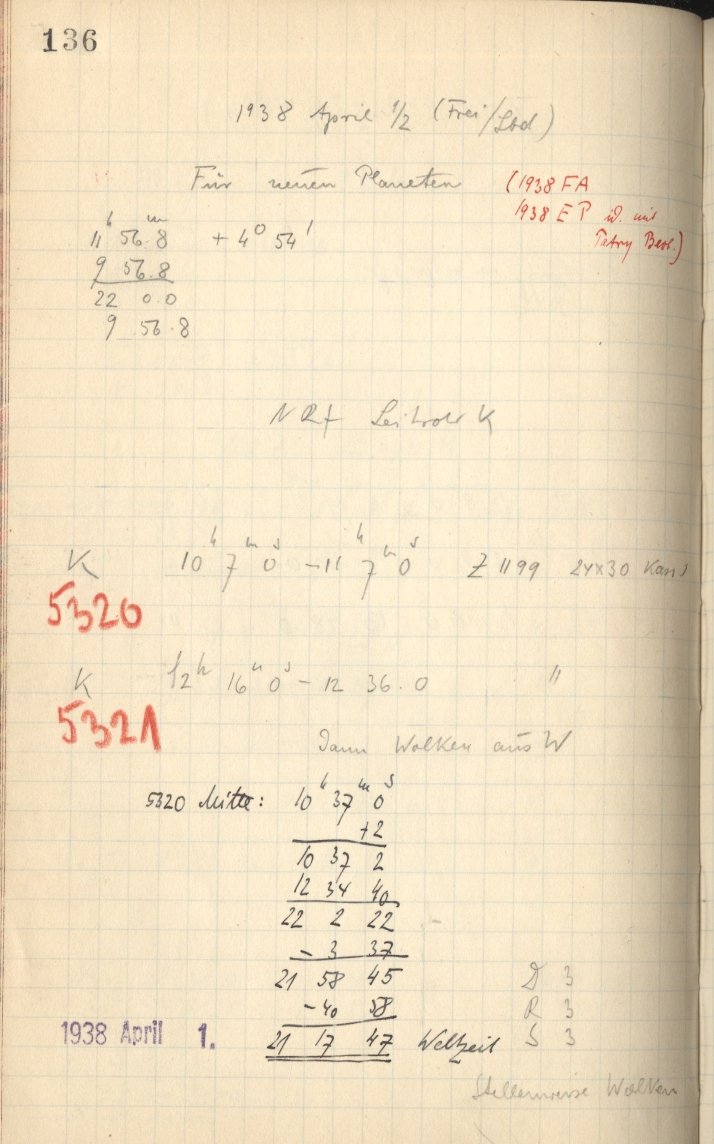 136
1938 April 1/2 (Frei/Sbd)
Für neuen Planeten
(1938 FA
1938 EP id. mit
11h 56m.8 + 4° 54'
9 56.8
22 0.0
9 56.8
K 10h 7m 0s – 11h 7m 0s Z 1199 24x30
5320
K 12h 16m 0s – 12 36.0 "
5321
Dann Wolken aus W
5320 Mitte: 10h 37m 0s
+2
10 37 2
12 34 40
22 2 22
– 3 37
21 58 45
– 40 58
1938 April 1.
21 17 47 Weltzeit
D 3
R 3
S 3
Stellenweise Wolken